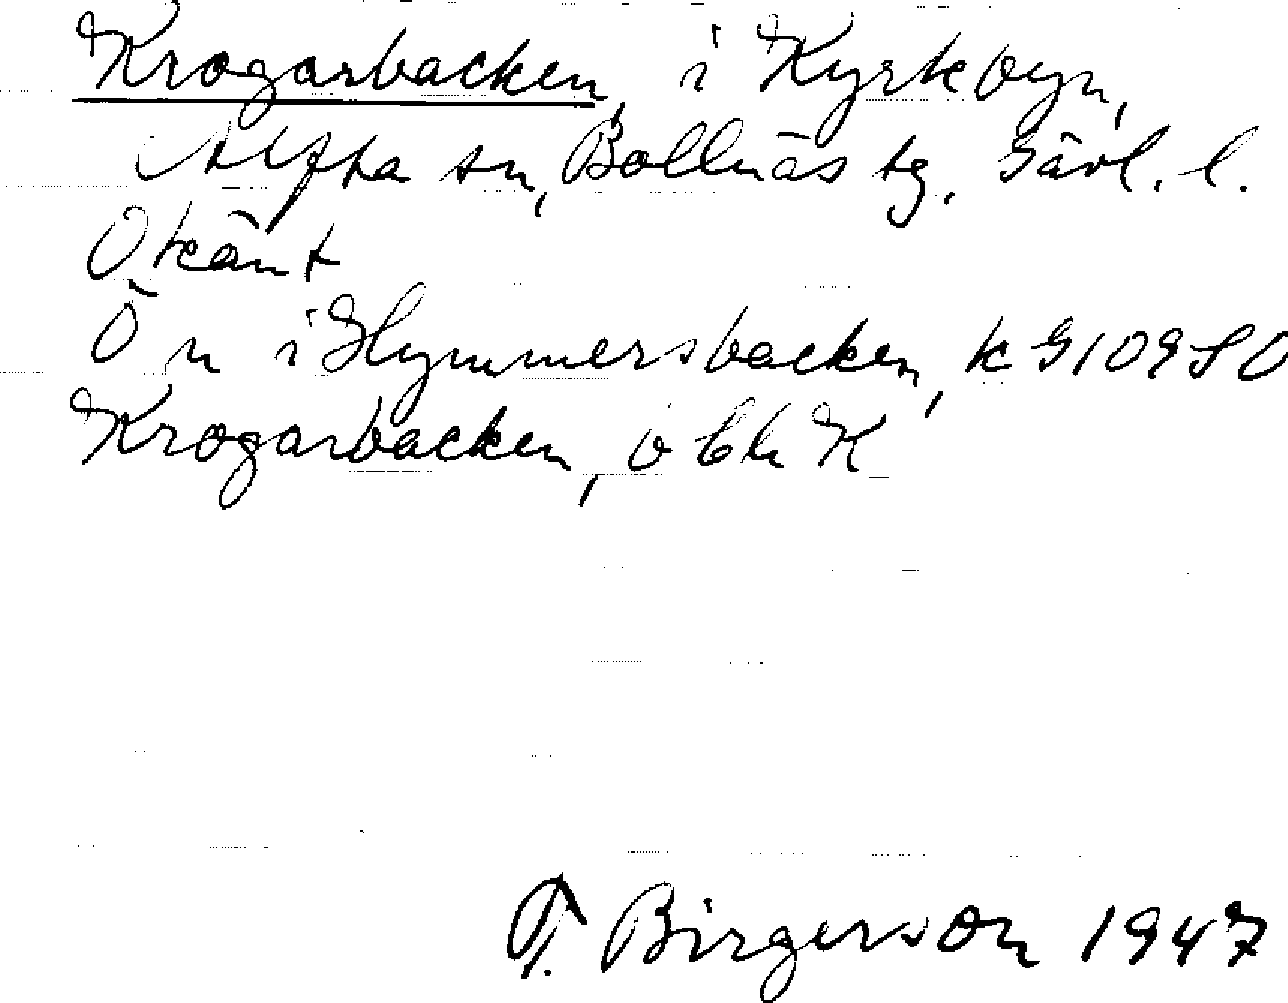 Krogarbacken, i Kyrkbyn,
Alfta sn, Bollnäs tg. Gävl. l.
Okänt
Ö n i Hymmersbacken, k G109SO
Krogarbacken, ö bh K
T. Birgerson 1947